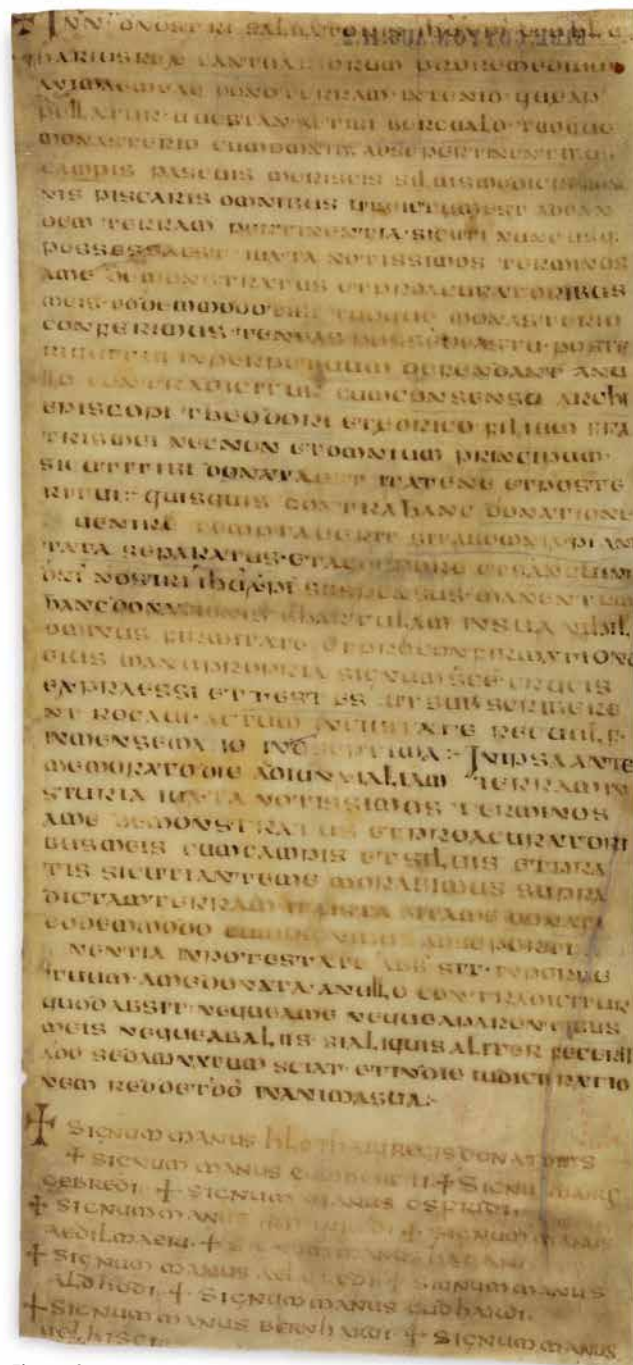 DARIUS REX CANTUARIORUM PRO REMEDIUM
ANIMAE MEAE DONO TERRAM IN TENID QUE AP
PELLATUR UUESTAN AE TIBI BERCUALD TUOQUE
MONASTERIO CUM OMNIBUS AD SE PERTINENTIBUS
CAMPIS PASCUIS MERISCIS SILUIS MODICIS FON
NIS PISCARIS OMNIBUS UT DICTUM EST AD EAN
DEM TERRAM PERTINENTIA SICUTI NUNC USQ·
POSSESSA EST IUXTA NOTISSIMOS TERMINOS
A ME DEMONSTRATUS ET PROACURATORIBUS
MEIS EODEM MODO TIBI TUOQUE MONASTERIO
CONFERIMUS TENEAS POSSEDEAS TU POSTE
RIQUE TUI IN PERPETUUM DEFENDANT A NU
LLO CONTRADICITUR CUM CONSENSU ARCHI
EPISCOPI THEODORI ET EDRICO FILIUM FRA
TRIS MEI NECNON ET OMNIUM PRINCIPUM·
SICUTI TIBI DONATA EST ITA TENE ET POSTE
RI TUI :· QUISQUIS CONTRA HANC DONATIONE
UENIRE TEMPTAUERIT SIT AB OMNI XPIANI
TATE SEPARATUS · ET A CORPORE ET SANGUINI
DNI NOSTRI IHU XPI SUSPENSUS · MANENTEM
HANC DONATIONIS CHARTULAM IN SUA NIHIL
OMINUS FIRMITATE ET PRO CONFIRMATIONE
EIUS MANU PROPRIA SIGNUM SCE CRUCIS
EXPRAESSI ET TESTES UT SUBSCRIBERE
NT ROGAUI · ACTUM IN CIUITATE RECUULF·
IN MENSE MAIO IND SEPTIMA :· IN IPSA ANTE
MEMORATO DIE ADIUNXI ALIAM TERRAM IN
STURIA IUXTA NOTISSIMOS TERMINOS
A ME DEMONSTRATUS ET PROACURATORI
BUS MEIS CUM CAMPIS ET SILUIS ET PRA
TIS SICUTI ANTE ME MORABIMUS SUPRA
DICTAM TERRAM ITA ISTA SIT A ME DONATA
EODEM MODO CUM OMNIBUS AD SE PERTI
NENTIA IN POTESTATE ABB SIT · IN PERPE
TUUM · A ME DONATA · A NULLO CONTRADICITUR
QUOD ABSIT NEQUE A ME NEQUE A PARENTIBUS
MEIS NEQUE AB ALIIS SI ALIQUIS ALITER FECERIT
A DO SE DAMNATUM SCIAT ET IN DIE IUDICII RATIO
NEM REDDET DO IN ANIMA SUA :·
+ SIGNUM MANUS HLOTHARI REGIS DONATORIS
+ SIGNUM MANUS GUMBERCTI + SIGNUM MANUS
GEBREDI + SIGNUM MANUS OSFRIDI
+ SIGNUM MANUS + SIGNUM MANUS
AEDILMAERI + SIGNUM MANUS HAGANI
+ SIGNUM MANUS + SIGNUM MANUS
ALDHODI + SIGNUM MANUS GUDHARDI
+ SIGNUM MANUS BERNHARDI + SIGNUM MANUS
UELHISCI